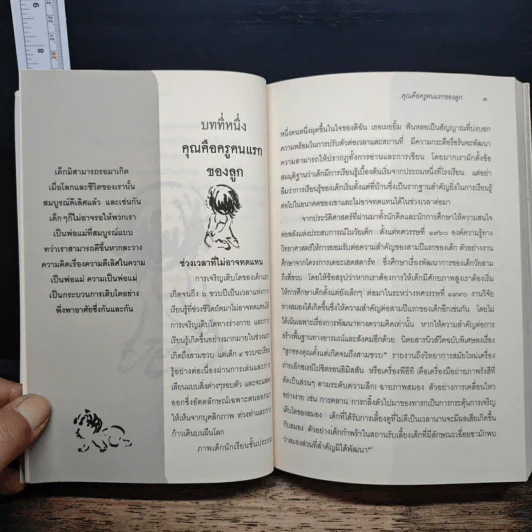 เด็กมิสามารถรอมาเกิด
เมื่อโลกและชีวิตของเรานั้น
สมบูรณ์ดีเลิศแล้ว และเช่นกัน
เด็กๆก็ไม่อาจรอให้พวกเรา
เป็นพ่อแม่ที่สมบูรณ์แบบ
ทว่าเราสามารถดีขึ้นหากละวาง
ความคิดเรื่องความดีเลิศในความ
เป็นพ่อแม่ ความเป็นพ่อแม่
เป็นกระบวนการเติบโตอย่าง
พึ่งพาอาศัยซึ่งกันและกัน
บทที่หนึ่ง
คุณคือครูคนแรก
ของลูก
ช่วงเวลาที่ไม่อาจทดแทน
การเจริญเติบโตของเด็กแร
เกิดจนถึง ๖ ขวบปีเป็นเวลาแห่งการ
เรียนรู้ที่ชั่วชีวิตถัดมาไม่อาจทดแทนได้
การเจริญเติบโตทางร่างกาย และการ
เรียนรู้เกิดขึ้นอย่างมากมายในช่วงแรก
เกิดถึงสามขวบ แต่เด็ก ๔ ขวบจะเรียน
รู้อย่างต่อเนื่องผ่านการเล่นและการ
เลียนแบบสิ่งต่างๆรอบตัว และจะแสดง
ออกซึ่งอัตลักษณ์เฉพาะตนออกมา
ให้เห็นจากบุคลิกภาพ ท่วงท่าและการ
ก้าวเดินบนผืนโลก
ภาพเด็กนักเรียนชั้นประถม
คุณคือครูคนแรกของลูก ๓
หนึ่งคนหนึ่งผุดขึ้นในใจของดิฉัน เธอเผยยิ้ม ฟันหลอเป็นสัญญาณที่บ่งบอก
ความพร้อมในการปรับตัวต่อเวลาและสถานที่ มีความกระตือรือร้นจะพัฒนา
ความสามารถให้ปรากฏทั้งการอ่านและการเขียน โดยมากเรามักตั้งข้อ
สมมุติฐานว่าเด็กมีการเรียนรู้เบื้องต้นเริ่มจากประถมหนึ่งที่โรงเรียน แต่อย่า
ลืมว่าการเรียนรู้ของเด็กเริ่มตั้งแต่ที่บ้านซึ่งเป็นรากฐานสำคัญยิ่งในการเรียนรู้
ต่อไปในอนาคตของเขาและไม่อาจทดแทนได้ในช่วงเวลาต่อมา
จากประวัติศาสตร์ที่ผ่านมาทั้งนักคิดและนักการศึกษาให้ความสนใจ
ต่อพลังแห่งประสบการณ์ในวัยเด็ก ตั้งแต่ทศวรรษที่ ๑๙๖๐ องค์ความรู้ทาง
วิทยาศาสตร์ให้การยอมรับต่อความสำคัญของสามปีแรกของเด็ก ตัวอย่างงาน
ศึกษาจากโครงการเดอะเฮดสตาร์ท ซึ่งศึกษาเรื่องพัฒนาการของเด็กวัยสาม
ถึงสี่ขวบ โดยให้ข้อสรุปว่าหากเราต้องการให้เด็กมีศักยภาพสูงเราต้องเริ่ม
ให้การศึกษาเด็กตั้งแต่ยังเล็กๆ ต่อมาในระหว่างทศวรรษที่ ๑๙๙๐ งานวิจัย
ทางสมองได้เกิดขึ้นซึ่งให้ความสำคัญต่อสามปีแรกของเด็กอีกเช่นกัน โดยไม่
ได้เน้นเฉพาะเรื่องการพัฒนาทางความคิดเท่านั้น หากให้ความสำคัญต่อการ
สร้างพื้นฐานทางอารมณ์และสังคมอีกด้วย นิตยสารนิวส์วีคฉบับพิเศษลงเรื่อง
"ลูกของคุณตั้งแต่เกิดจนถึงสามขวบ" รายงานถึงวิทยาการสมัยใหม่เครื่อง
ถ่ายเอ็กซเรย์โปซิตรอนอีมิสสัน หรือเครื่องพีอีที (คือเครื่องมือถ่ายภาพรังสีที่
คิดเป็นส่วนๆ ตามระดับความลึก) ฉายภาพสมอง ตัวอย่างการเคลื่อนไหว
อย่างง่าย เช่น การคลาน การกลิ้งตัวไปมาของทารกเป็นการกระตุ้นการเจริญ
เติบโตของสมอง เด็กที่ได้รับการเลี้ยงดูที่ไม่ดีเป็นเวลานานจะมีผลเสียเกิดขึ้น
กับสมอง ตัวอย่างเด็กกำพร้าในสถานรับเลี้ยงเด็กที่มีลักษณะเฉื่อยชามักพบ
ว่าสมองส่วนที่สำคัญมิได้พัฒนา"